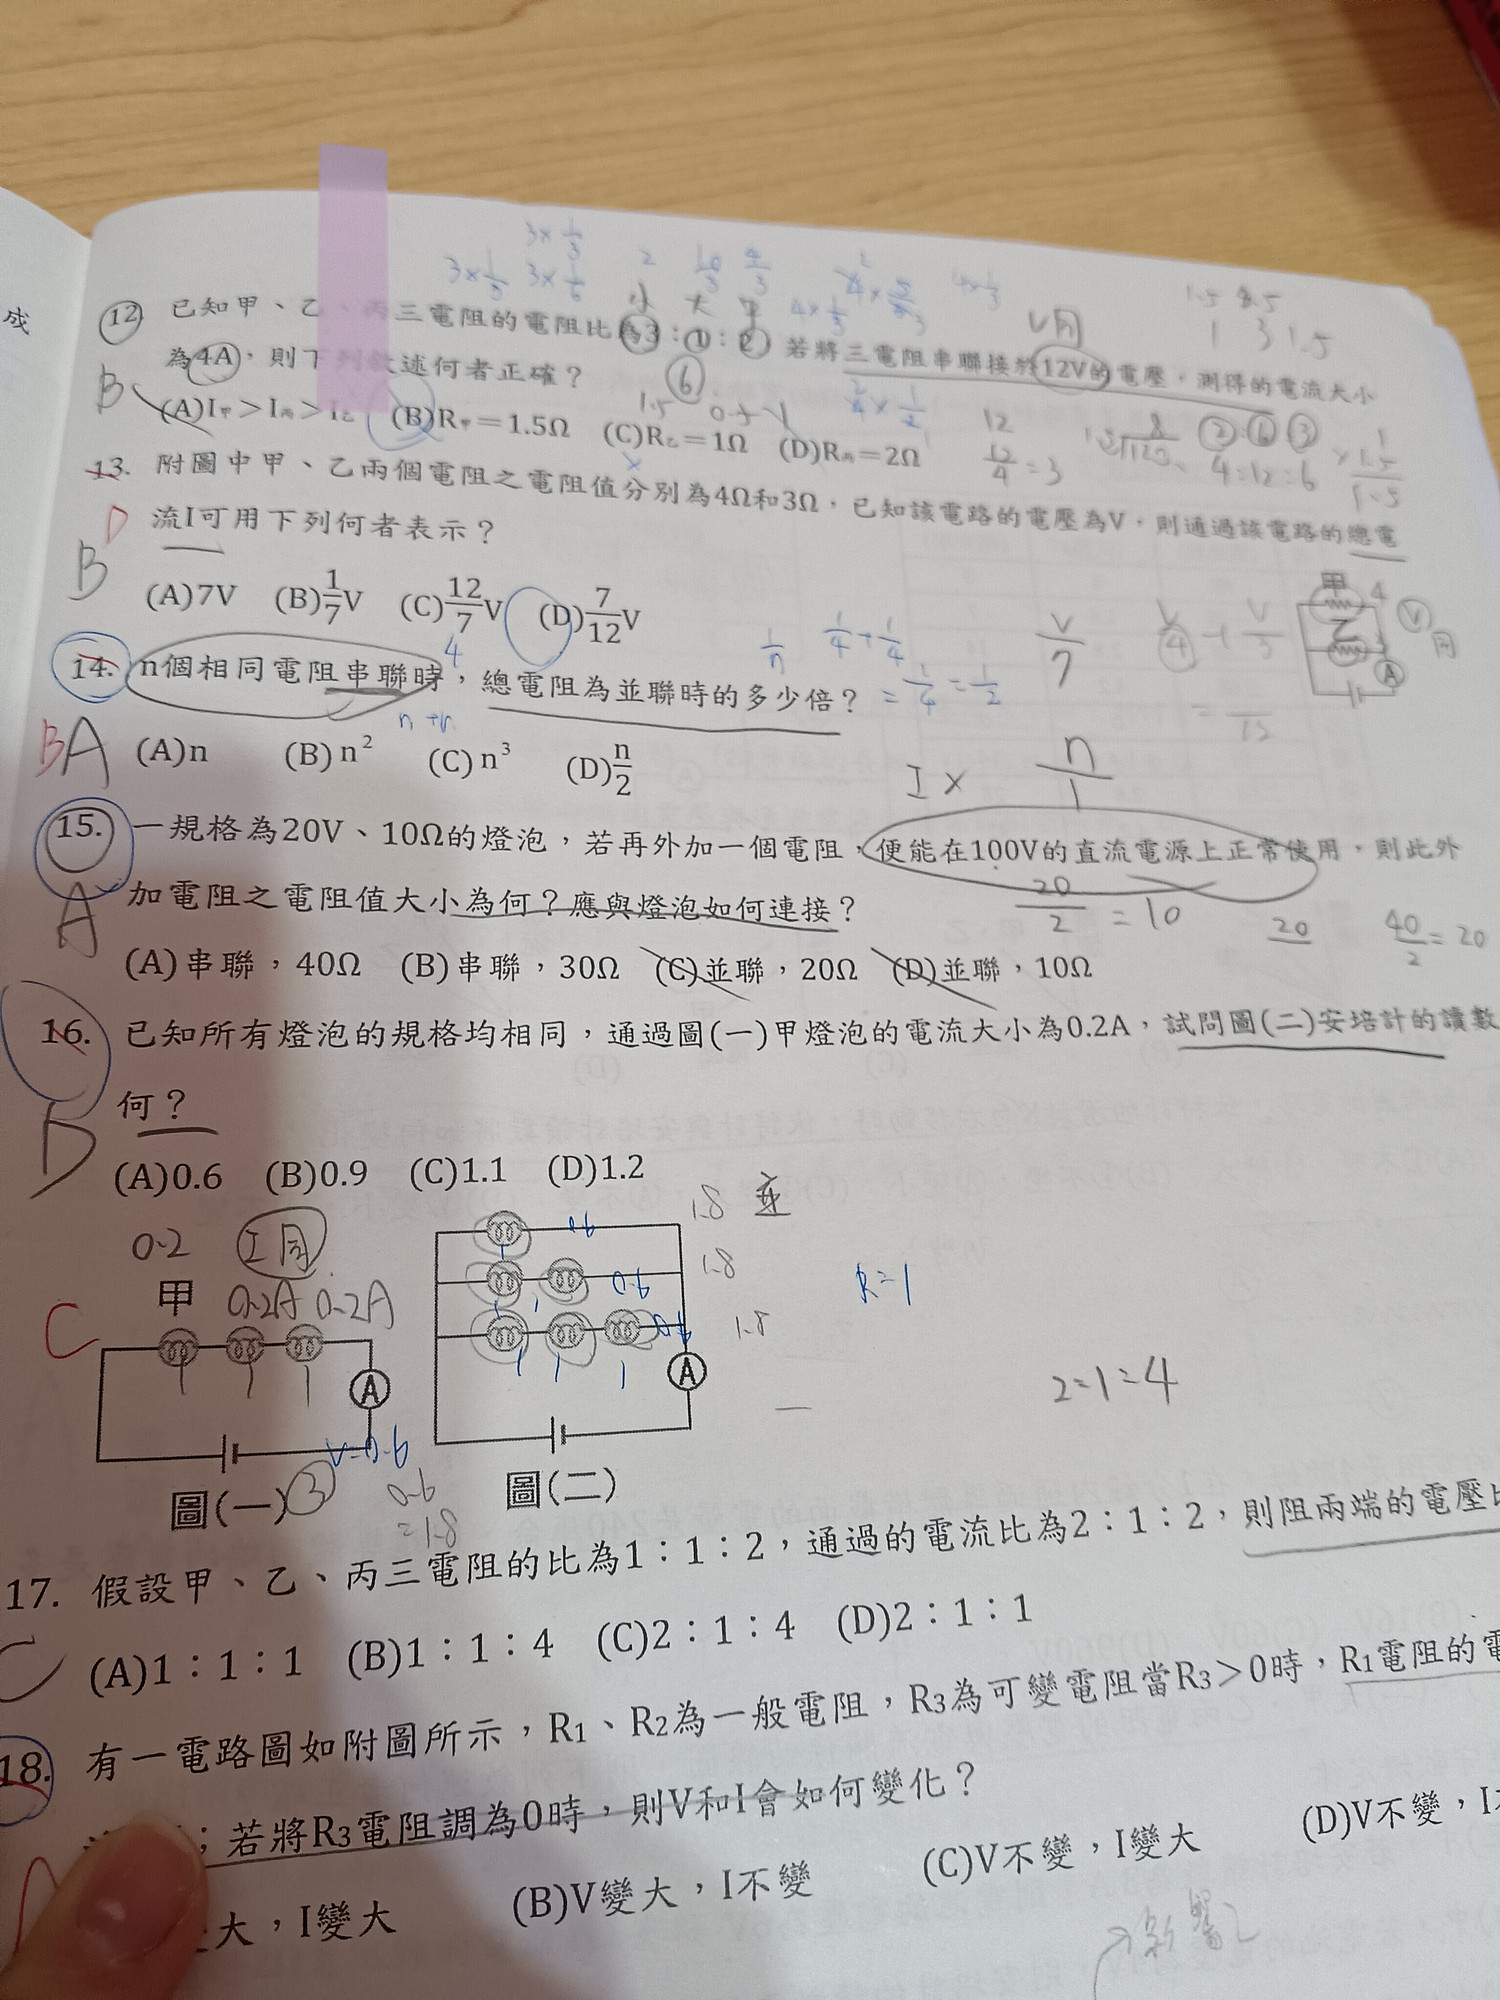 成
3×1/3
12 已知甲、乙、丙三電阻的電阻比為3：1：2，若將三電阻串聯接於12V的電壓，測得的電流大小
為4A，則下列敘述何者正確？
B
(A)I甲＞I丙＞I乙 (B)R甲＝1.5Ω (C)R乙＝1Ω (D)R丙＝2Ω
小 大 中
V同
1 3 1.5
6
12
12/4=3
4:12:6
13. 附圖中甲、乙兩個電阻之電阻值分別為4Ω和3Ω，已知該電路的電壓為V，則通過該電路的總電
D 流I可用下列何者表示？
B
(A)7V (B)1/7V (C)12/7V (D)7/12V
甲 4
乙
A
V同
V/7
14. n個相同電阻串聯時，總電阻為並聯時的多少倍？
4
1/n
1/4+1/4
=1/4=1/2
BA (A)n (B)n² (C)n³ (D)n/2
I× n/1
15. 一規格為20V、10Ω的燈泡，若再外加一個電阻，便能在100V的直流電源上正常使用，則此外
A 加電阻之電阻值大小為何？應與燈泡如何連接？
20/2=10
20
40/2=20
(A)串聯，40Ω (B)串聯，30Ω (C)並聯，20Ω (D)並聯，10Ω
16. 已知所有燈泡的規格均相同，通過圖(一)甲燈泡的電流大小為0.2A，試問圖(二)安培計的讀數
何？
D
(A)0.6 (B)0.9 (C)1.1 (D)1.2
0.2 I同
甲 0.2A 0.2A
C
1 1 1
A
V=0.6
圖(一) 3
0.6
=1.8
0.6 1.8 並
0.6 1.8
1.8
1 1 1
A
圖(二)
R=1
2:1:4
17. 假設甲、乙、丙三電阻的比為1：1：2，通過的電流比為2：1：2，則阻兩端的電壓比
C (A)1：1：1 (B)1：1：4 (C)2：1：4 (D)2：1：1
18. 有一電路圖如附圖所示，R1、R2為一般電阻，R3為可變電阻當R3＞0時，R1電阻的電
；若將R3電阻調為0時，則V和I會如何變化？
大，I變大 (B)V變大，I不變 (C)V不變，I變大 (D)V不變，I